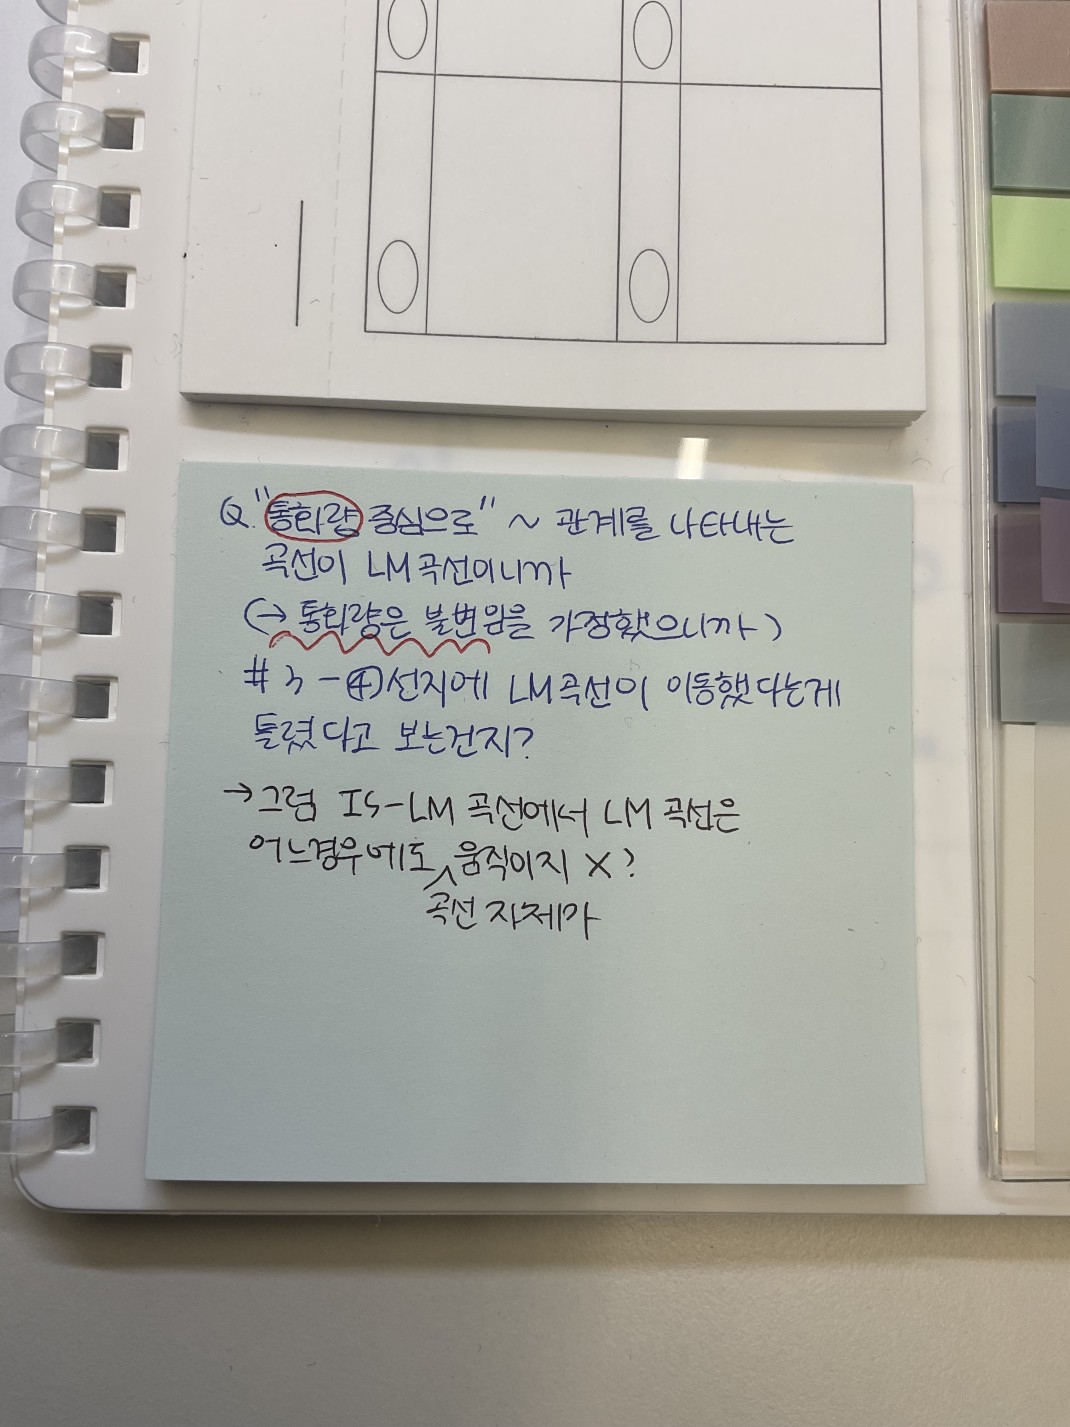 Q. "통화량 중심으로" ~ 관계를 나타내는
곡선이 LM곡선이니까
(→ 통화량은 불변임을 가정했으니까)
#3-④선지에 LM곡선이 이동했다는게
틀렸다고 보는건지?
→그럼 IS-LM 곡선에서 LM 곡선은
어느경우에도 움직이지 X?
곡선 자체가